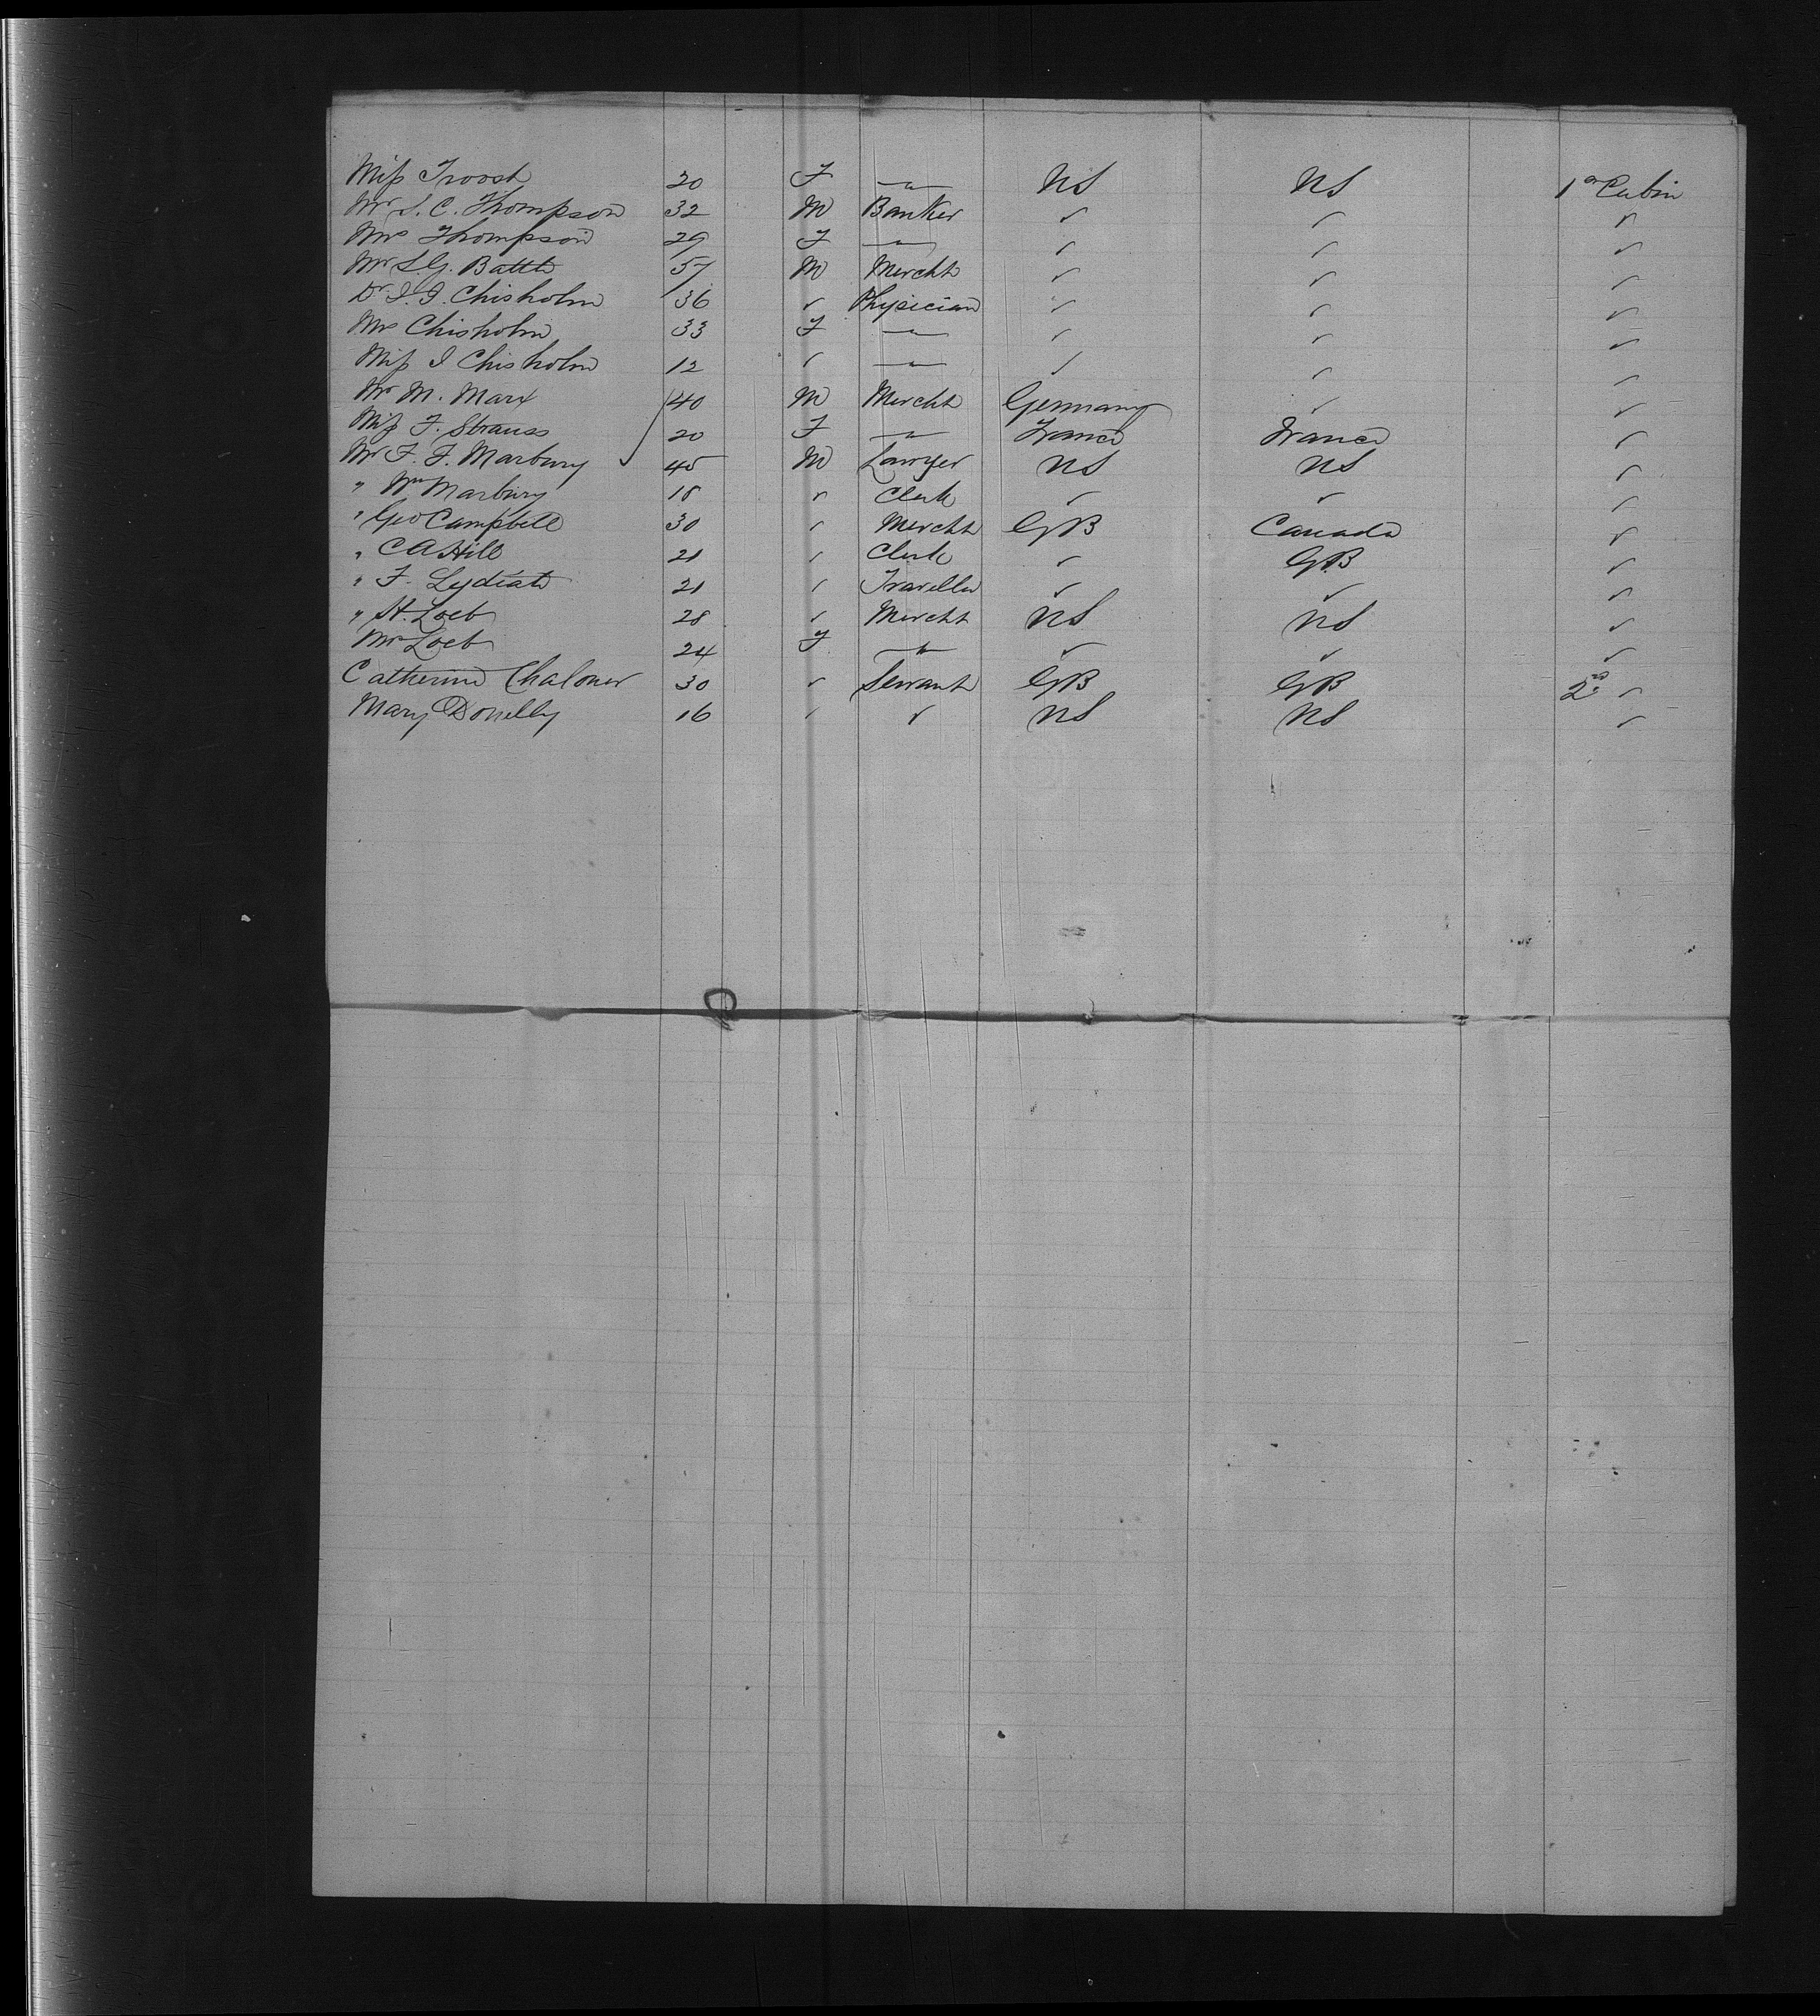 Miss Troost 20 F —"— US US 1st Cabin
Mr S. C. Thompson 32 M Banker ✓ ✓ ✓
Mrs Thompson 29 F —"— ✓ ✓ ✓
Mr S.G. Battle 57 M Mercht ✓ ✓ ✓
Dr J. J. Chisholm 36 ✓ Physician ✓ ✓ ✓
Mrs Chisholm 33 F —"— ✓ ✓ ✓
Miss J Chisholm 12 ✓ —"— ✓ ✓ ✓
Mr M. Marx 40 M Mercht Germany ✓ ✓
Miss F. Strauss 20 F —"— France France ✓
Mr F. F. Marbury 45 M Lawyer US US ✓
" Wm Marbury 18 ✓ Clerk ✓ ✓ ✓
" Geo Campbell 30 ✓ Mercht GB Canada ✓
" C A Hill 21 ✓ Clerk ✓ GB ✓
" F. Lydiatt 21 ✓ Traveller ✓ ✓ ✓
" H. Loeb 28 ✓ Mercht US US ✓
Mrs Loeb 24 F —"— ✓ ✓ ✓
Catherine Chaloner 30 ✓ Servant GB GB 2nd ✓
Mary Donelly 16 ✓ ✓ US US ✓